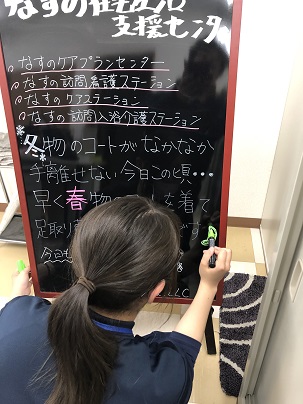 なすの在宅
支援センタ
なすのケアプランセンター
なすの訪問看護ステーション
なすのケアステーション
なすの訪問入浴介護ステーション
冬物のコートがなかなか
手離せない今日この頃…
早く春物の を着て
足取り です
今日も
LLC